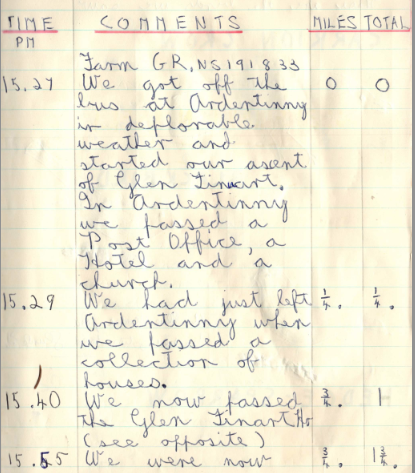 TIME COMMENTS MILES TOTAL
PM
Farm GR, NS 191833
15.27 We got off the 0 0
bus at Ardentinny
in deplorable
weather and
started our ascent
of Glen Finart.
In Ardentinny
we passed a
Post Office, a
Hotel and a
church.
15.29 We had just left ¼. ¼.
Ardentinny when
we passed a
collection of
houses.
15.40 We now passed ¾. 1
the Glen Finart Ho
(see opposite)
15.55 We were now ¾. 1¾.